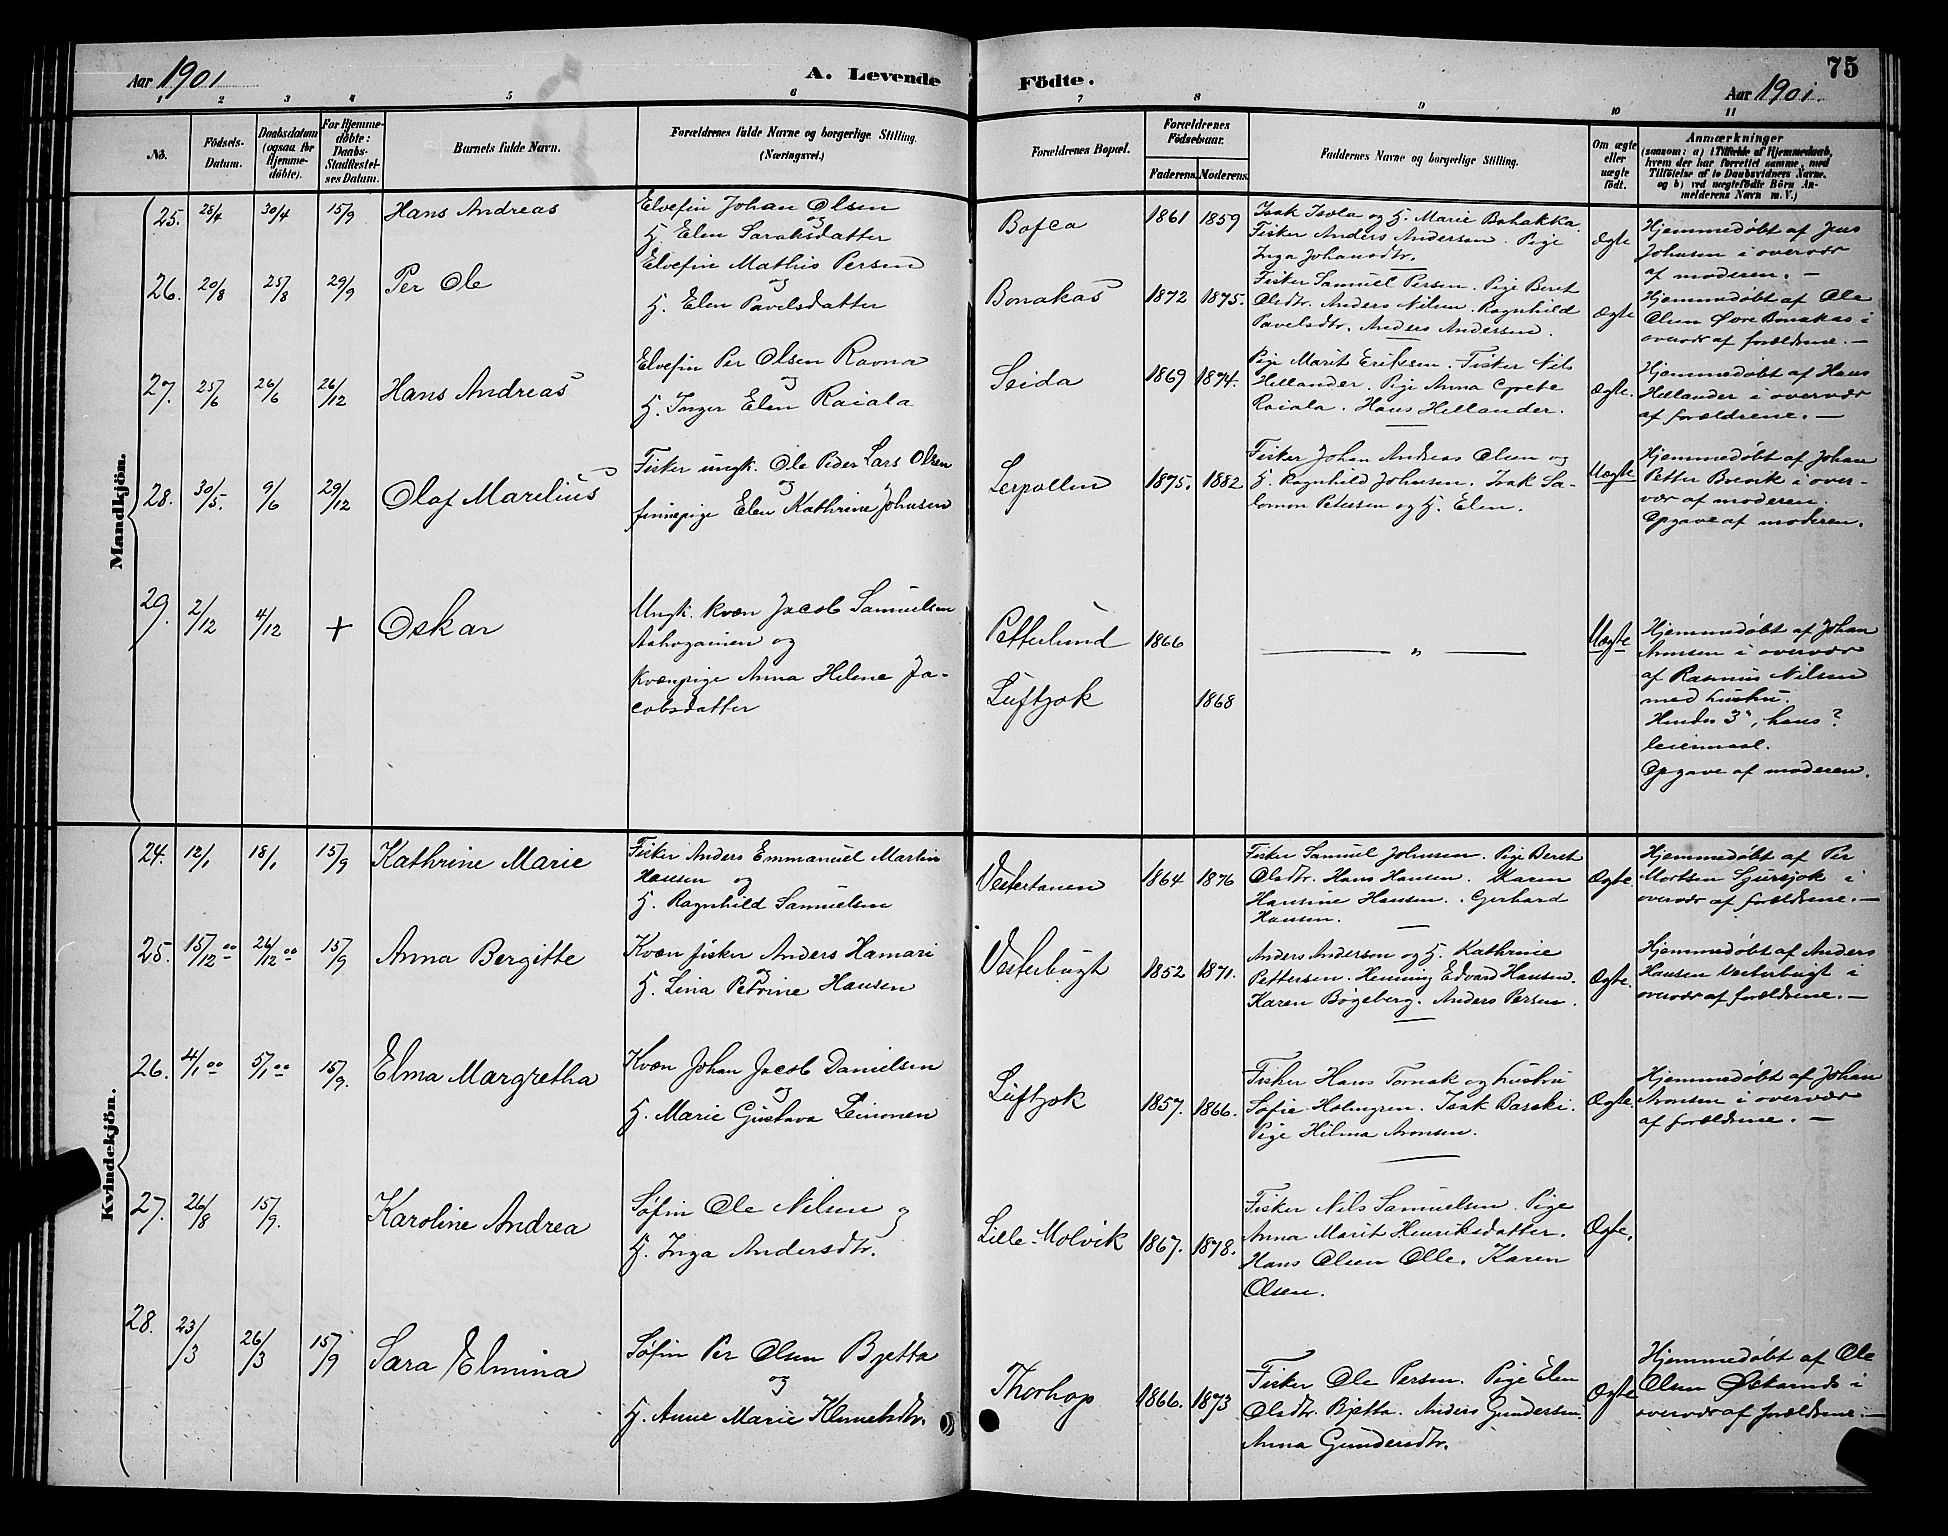 Aar 1901
A. Levende
Födte.
75
Aar 1901.
1 2 3 4 5 6 7 8 9 10 11
No.
Födsels-
Datum.
Daabsdatum
(ogsaa for
Hjemme-
döbte).
For Hjemme-
döbte:
Daabs-
Stadfæstel-
ses Datum.
Barnets fulde Navn.
Forældrenes fulde Navne og borgerlige Stilling.
(Næringsvei.)
Forældrenes Bopæl.
Forældrenes
Födselsaar.
Faderens. Moderens.
Faddernes Navne og borgerlige Stilling.
Om ægte
eller
uægte
født.
Anmærkninger
(saasom: a) i Tilfælde af Hjemmedaab,
hvem der har forrettet samme, med
Tilföielse af to Daabsvidners Navne.
og b) ved uægtefödte Börn An-
melderens Navn m. V.)
Mandkjön.
25. 25/4 30/4 15/9 Hans Andreas
Elvefin Johan Olsen
og
H. Elen Saraksdatter
Bofca 1861 1859
Isak Isola og H. Marie Bohakka.
Fisker Anders Andersen. Pige
Inga Johansdtr.
Ægte
Hjemmedøbt af Jens
Johnsen i overvær
af moderen. —
26. 20/8 25/8 29/9 Per Ole
Elvefin Mathis Persen
og
H. Elen Pavelsdatter
Bonakas 1872 1875.
Fisker Samuel Persen. Pige Beret
Olsdtr. Anders Nilsen. Ragnhild
Pavelsdtr. Anders Andersen.
Ægte
Hjemmedøbt af Ole
Olsen Øvre Bonakas i
overvær af forældrene. —
27. 25/6 26/6 26/12 Hans Andreas
Elvefin Per Olsen Ravna
og
H. Inger Elen Raiala
Seida 1869 1874.
Pige Marit Eriksen. Fisker Nils
Hellander. Pige Anna Grete
Raiala. Hans Hellander.
Ægte.
Hjemmedøbt af Hans
Hellander i overvær
af forældrene. —
28. 30/5. 9/6 29/12 Olaf Marelius
Fisker ungk. Ole Peder Lars Olsen
og
finnepige Elen Kathrine Johnsen
Lerpollen 1875. 1882
Fisker Johan Andreas Olsen og
H. Ragnhild Johnsen. Isak Sa-
lomon Petersen og H. Elen.
Uægte
Hjemmedøbt af Johan
Petter Brevik i over-
vær af moderen.
Opgave af moderen.
29. 2/12 4/12 + Oskar
Ungk. kvæn Jacob Samuelsen
og
kvænpige Anna Helene Ja-
cobsdatter
Petterlund 1866
Luftjok 1868
— " —
Uægte
Hjemmedøbt af Johan
Aronsen i overvær
af Rasmus Nilsen
med hustru.
Hendes 3, hans ?
leiermaal.
Opgave af moderen.
Kvindekjön.
24. 12/1 18/1 15/9 Kathrine Marie
Fisker Anders Emmanuel Martin
Hansen og
H. Ragnhild Samuelsen
Vestertanen 1864 1876
Fisker Samuel Johnsen. Pige Beret
Olsdtr. Hans Hansen. Karen
Hansine Hansen. Gerhard
Hansen.
Ægte.
Hjemmedøbt af Per
Mortsen Sjursjok i
overvær af forældrene. —
25. 15/12 00 26/12 00 15/9 Anna Bergitte
Kvæn fisker Anders Hamari
og
H. Lina Petrine Hansen
Vesterbugt 1852 1871.
Anders Anderson og H. Kathrine
Pettersen. Henning Edvard Hansen.
Karen Bøgeberg. Anders Persen.
Ægte.
Hjemmedøbt af Anders
Hansen Vesterbugt i
overvær af forældrene. —
26. 4/1 00 5/1 00 15/9. Elma Margretha
Kvæn Johan Jacob Danielsen
og
H. Marie Gustava Leinonen
Luftjok 1857. 1866.
Fisker Hans Tornak og hustru
Sofie Holmgren. Isak Basski.
Pige Hilma Aronsen.
Ægte.
Hjemmedøbt af Johan
Aronsen i overvær
af forældrene. —
27. 26/8 15/9. Karoline Andrea
Søfin Ole Nilsen og
H. Inga Andersdtr.
Lille-Molvik 1867. 1878.
Fisker Nils Samuelsen. Pige
Anna Marit Henriksdatter.
Hans Olsen Olle. Karen
Olsen.
Ægte.
28. 23/3 26/3 15/9 Sara Elmina
Søfin Per Olsen Bjetta
og
H. Anne Marie Klemetsdtr.
Thorhop 1866. 1873
Fisker Ole Persen. Pige Elen
Olsdtr. Bjetta. Anders Gundersen.
Anna Gundersdtr.
Ægte
Hjemmedøbt af Ole
Olsen i
overvær af forældrene. —